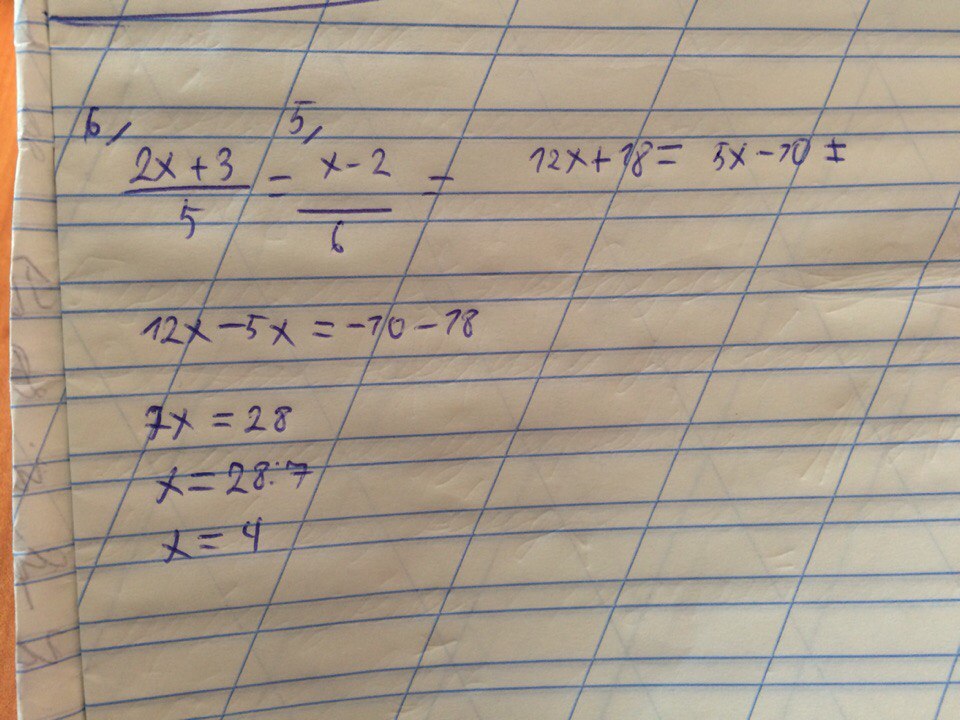 6, 5,
2x+3/5 = x-2/6 = 12x+18= 5x-10 ±
12x-5x = -10-18
7x = 28
x=28:7
x= 4